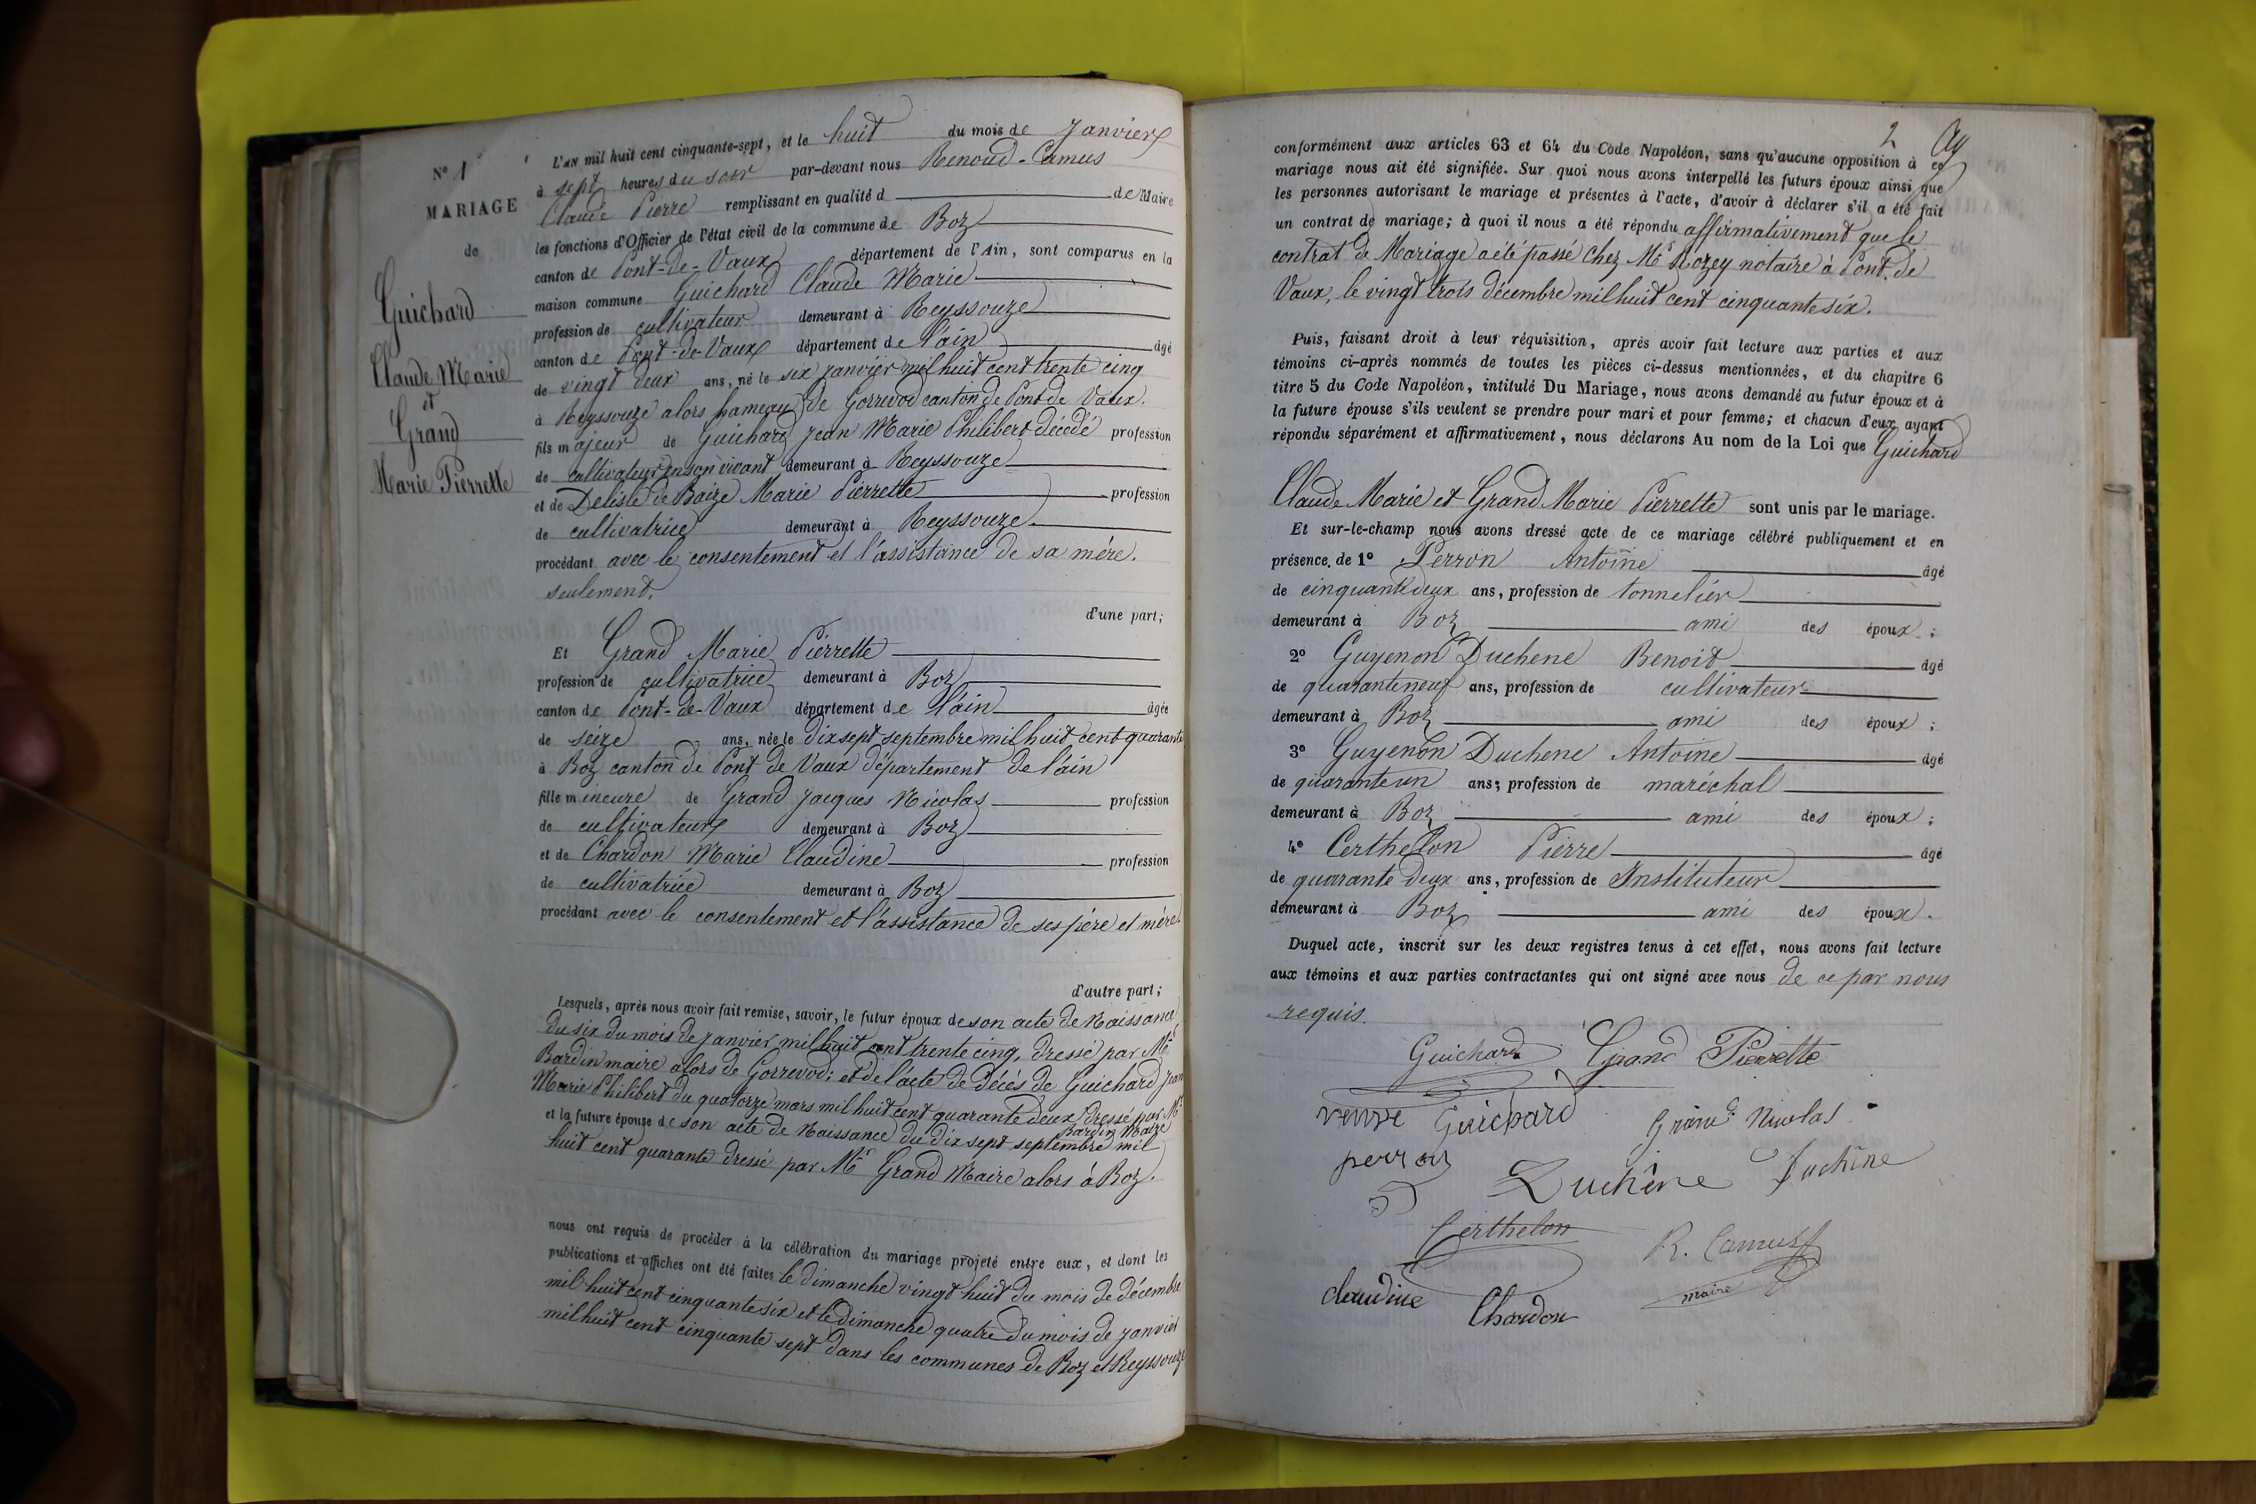 N° 1
MARIAGE
de
Guichard
Claude Marie
et
Grand
Marie Pierrette
L'AN mil huit cent cinquante-sept, et le huit du mois de Janvier
à sept heures du soir par-devant nous Renoud-Camus
Claude Pierre remplissant en qualité d de Maire
les fonctions d'Officier de l'état civil de la commune de Boz
canton de Pont-de-Vaux département de l'Ain, sont comparus en la
maison commune Guichard Claude Marie
profession de cultivateur demeurant à Reyssouze
canton de Pont-de-Vaux département de l'ain âgé
de vingt deux ans, né le six janvier mil huit cent trente cinq
à Reyssouze alors hameau de Gorrevod canton de Pont de Vaux.
fils majeur de Guichard Jean Marie Philibert décédé profession
de cultivateur en son vivant demeurant à Reyssouze
et de Delisle de Baize Marie Pierrette profession
de cultivatrice demeurant à Reyssouze
procédant avec le consentement et l'assistance de sa mére.
seulement.
d'une part;
Et Grand Marie Pierrette
profession de cultivatrice demeurant à Boz
canton de Pont-de-Vaux département de l'ain âgée
de seize ans, née le dix sept septembre mil huit cent quarante
à Boz canton de Pont de Vaux département de l'ain
fille mineure de Grand Jacques Nicolas profession
de cultivateur demeurant à Boz
et de Chardon Marie Claudine profession
de cultivatrice demeurant à Boz
procédant avec le consentement et l'assistance de ses pére et mére
d'autre part;
Lesquels, après nous avoir fait remise, savoir, le futur époux de son acte de Naissance
du six du mois de janvier mil huit cent trente cinq, dressé par Mr
Bardin maire alors de Gorrevod; et de l'acte de décés de Guichard Jean
Marie Philibert du quatorze mars mil huit cent quarante deux dressé par Mr
Bardin Maire
et la future épouse de son acte de Naissance du dix sept septembre mil
huit cent quarante dressé par Mr Grand Maire alors à Boz.
nous ont requis de procéder à la célébration du mariage projeté entre eux, et dont les
publications et affiches ont été faites le dimanche vingt huit du mois de décembre
mil huit cent cinquante six et le dimanche quatre du mois de janvier
mil huit cent cinquante sept dans les communes de Boz et Reyssouze
2
conformément aux articles 63 et 64 du Code Napoléon, sans qu'aucune opposition à ce
mariage nous ait été signifiée. Sur quoi nous avons interpellé les futurs époux ainsi que
les personnes autorisant le mariage et présentes à l'acte, d'avoir à déclarer s'il a été fait
un contrat de mariage; à quoi il nous a été répondu affirmativement que le
contrat de Mariage a été passé chez Mr Rozey notaire à Pont de
Vaux, le vingt trois décembre mil huit cent cinquante six.
Puis, faisant droit à leur réquisition, après avoir fait lecture aux parties et aux
témoins ci-après nommés de toutes les pièces ci-dessus mentionnées, et du chapitre 6
titre 5 du Code Napoléon, intitulé Du Mariage, nous avons demandé au futur époux et à
la future épouse s'ils veulent se prendre pour mari et pour femme; et chacun d'eux ayant
répondu séparément et affirmativement, nous déclarons Au nom de la Loi que Guichard
Claude Marie et Grand Marie Pierrette sont unis par le mariage.
Et sur-le-champ nous avons dressé acte de ce mariage célébré publiquement et en
présence de 1° Perron Antoine âgé
de cinquante deux ans, profession de tonnelier
demeurant à Boz ami des époux;
2° Guyenon Duchene Benoit âgé
de quarante neuf ans, profession de cultivateur
demeurant à Boz ami des époux;
3° Guyenon Duchene Antoine âgé
de quarante un ans; profession de maréchal
demeurant à Boz ami des époux;
4° Certhelon Pierre âgé
de quarante deux ans, profession de Instituteur
demeurant à Boz ami des époux.
Duquel acte, inscrit sur les deux registres tenus à cet effet, nous avons fait lecture
aux témoins et aux parties contractantes qui ont signé avec nous de ce par nous
requis.
Guichard Grand Pierrette
veuve Guichard Grand Nicolas
perron Duchêne Duchêne
Certhelon R. Camus
maire
claudine Chardon